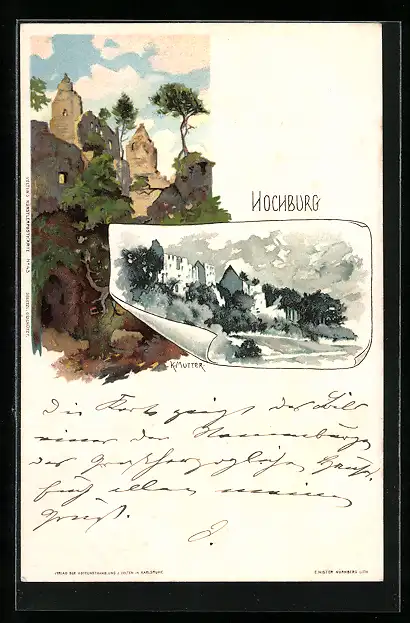 HOCHBURG
K. MUTTER
Die Karte zeigt das Bild
einer der Stammburgen
des großherzoglichen Hauses.
Euch allen meinen
Gruß.
J.
VERLAG DER HOFKUNSTHANDLUNG J. VELTEN IN KARLSRUHE
E. NISTER NÜRNBERG LITH.